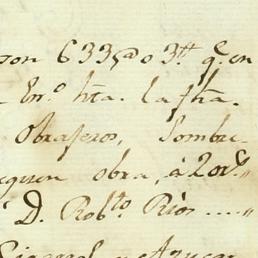 son 633@o 3tt q.e en
En.o hta. la fha.
Obrageros, Sombre-
requen obra, à 20 r.s „
D. Rob.to Rios .... „